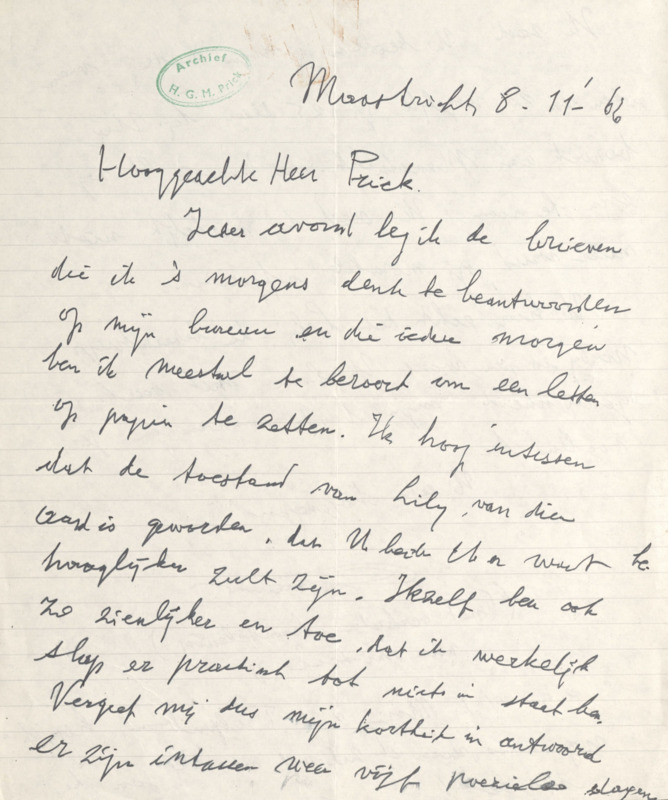 Archief
H. G. M. Prick
Maastricht 8 - 11 - 66
Hooggeachte Heer Prick.
Ieder avond leg ik de brieven
die ik 's morgens denk te beantwoorden
op mijn bureau en die iedere morgen
ben ik meestal te beroerd om een letter
op papier te zetten. Ik hoop intussen
dat de toestand van Lily, van dien
aard is geworden, dat U beide er weer
hooglijker zult zijn. Ikzelf ben ook
zo zienlijker en toe, dat ik werkelijk
slap er practisch tot niets in staat ben.
Vergeef mij dus mijn kortheid in antwoord
er zijn intussen weer vijf poezielse dagen